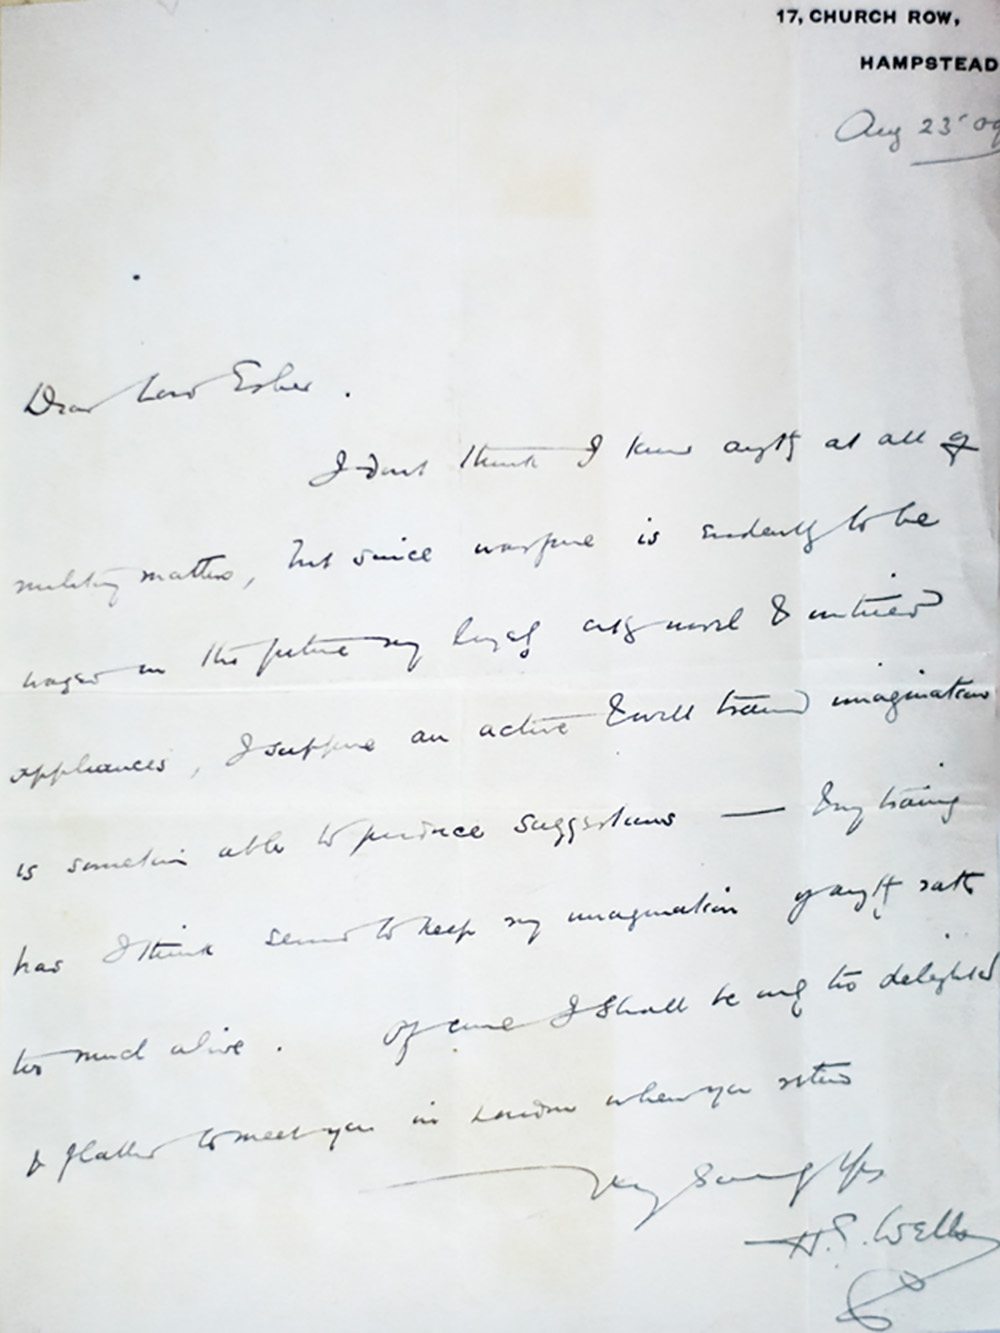 17, CHURCH ROW,
HAMPSTEAD
Aug 23 '09
Dear Lord Esher.
I don't think I know anyth at all of
military matters, but since warfare is evidently to be
waged in the future by novel & untried
appliances, I suppose an active & well trained imagination
is sometimes able to produce suggestions — & my training
has I think served to keep my imagination if anyth rather
too much alive. Of course I shall be only too delighted
& flattered to meet you in London when you return
Very Sincerely Yrs
H.G. Wells